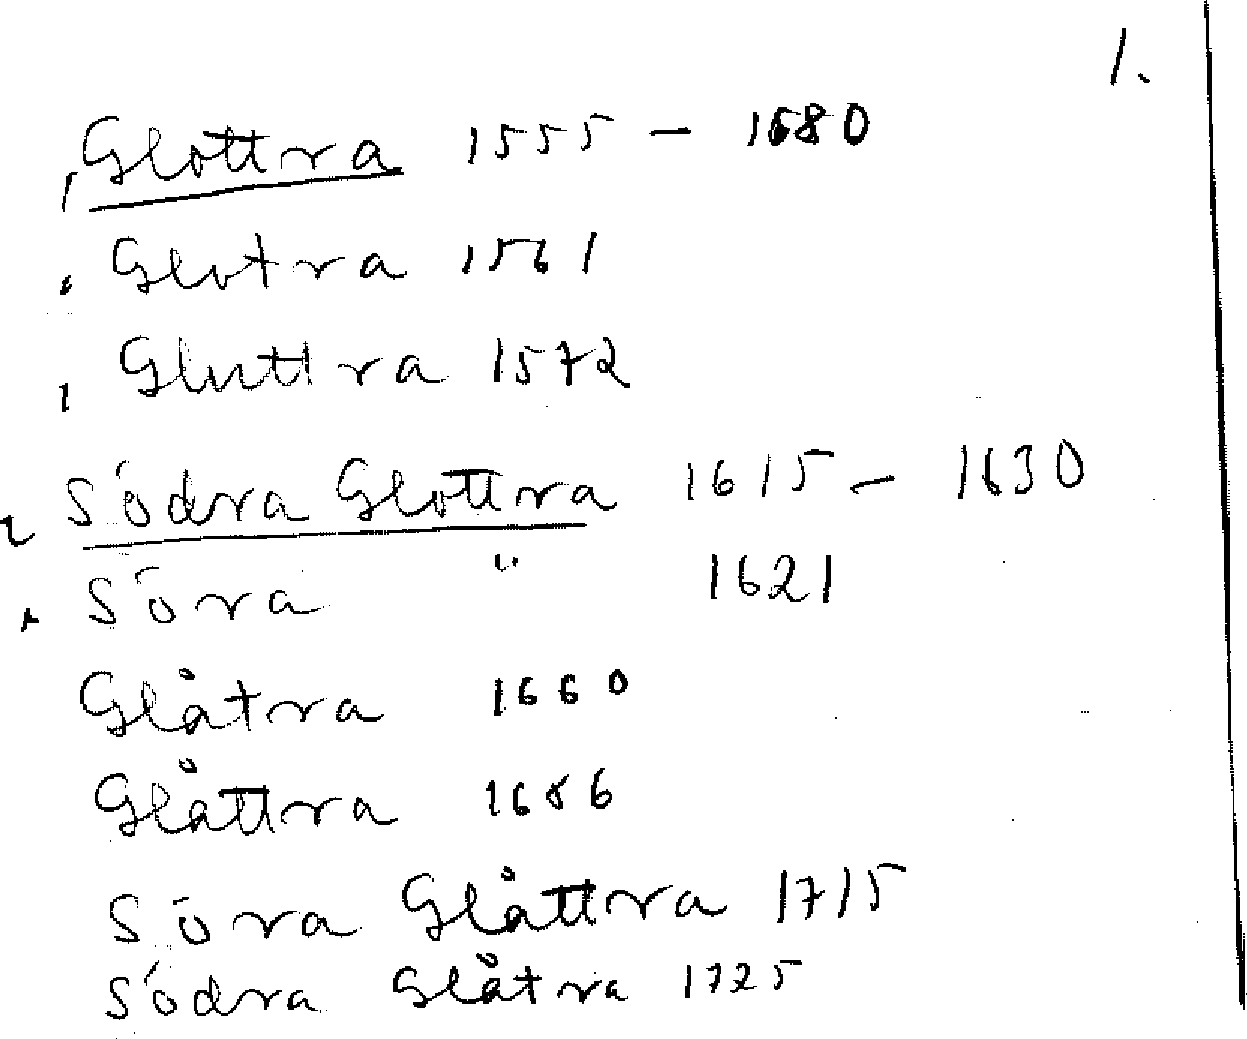 1.
Glottra 1555 - 1680
Glotra 1561
Gluttra 1572
Södra Glottra 1615 - 1630
Söra " 1621
Glåtra 1660
Glåttra 1686
Söra Glåttra 1715
Södra Glåtra 1725